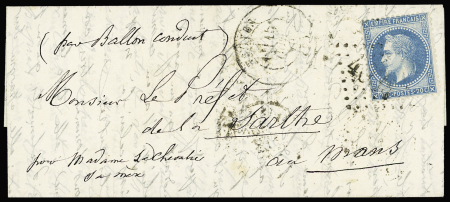 EMPIRE FRANÇAIS
(par Ballon conduit)
POSTES 20 C
Monsieur Le Préfet
de la Sarthe
au Mans
pour Madame
sa mère